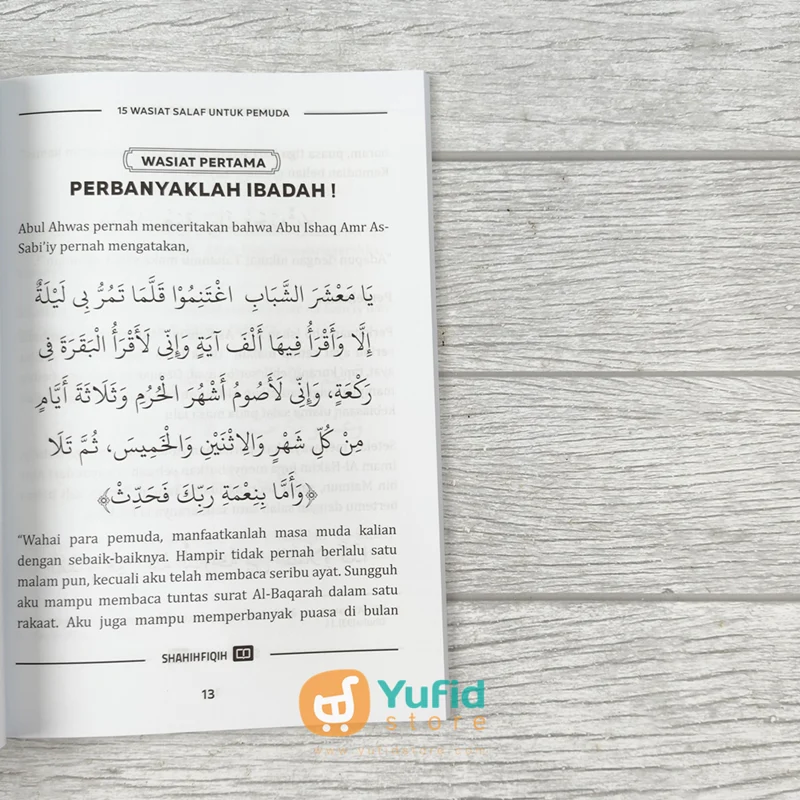 15 WASIAT SALAF UNTUK PEMUDA
WASIAT PERTAMA
PERBANYAKLAH IBADAH !
Abul Ahwas pernah menceritakan bahwa Abu Ishaq Amr As-
Sabi'iy pernah mengatakan,
يَا مَعْشَرَ الشَّبَابِ اغْتَنِمُوْا قَلَّمَا تَمُرُّ بِى لَيْلَةٌ
إِلَّا وَأَقْرَأُ فِيهَا أَلْفَ آيَةٍ وَإِنِّى لَأَقْرَأُ الْبَقَرَةَ فِى
رَكْعَةٍ، وَإِنِّى لَأَصُومُ أَشْهُرَ الْحُرُمِ وَثَلَاثَةَ أَيَّامٍ
مِنْ كُلِّ شَهْرٍ وَالِاثْنَيْنِ وَالْخَمِيسَ، ثُمَّ تَلَا
﴿وَأَمَّا بِنِعْمَةِ رَبِّكَ فَحَدِّثْ﴾
"Wahai para pemuda, manfaatkanlah masa muda kalian
dengan sebaik-baiknya. Hampir tidak pernah berlalu satu
malam pun, kecuali aku telah membaca seribu ayat. Sungguh
aku mampu membaca tuntas surat Al-Baqarah dalam satu
rakaat. Aku juga mampu memperbanyak puasa di bulan
SHAHIHFIQIH
13
Yufid
store